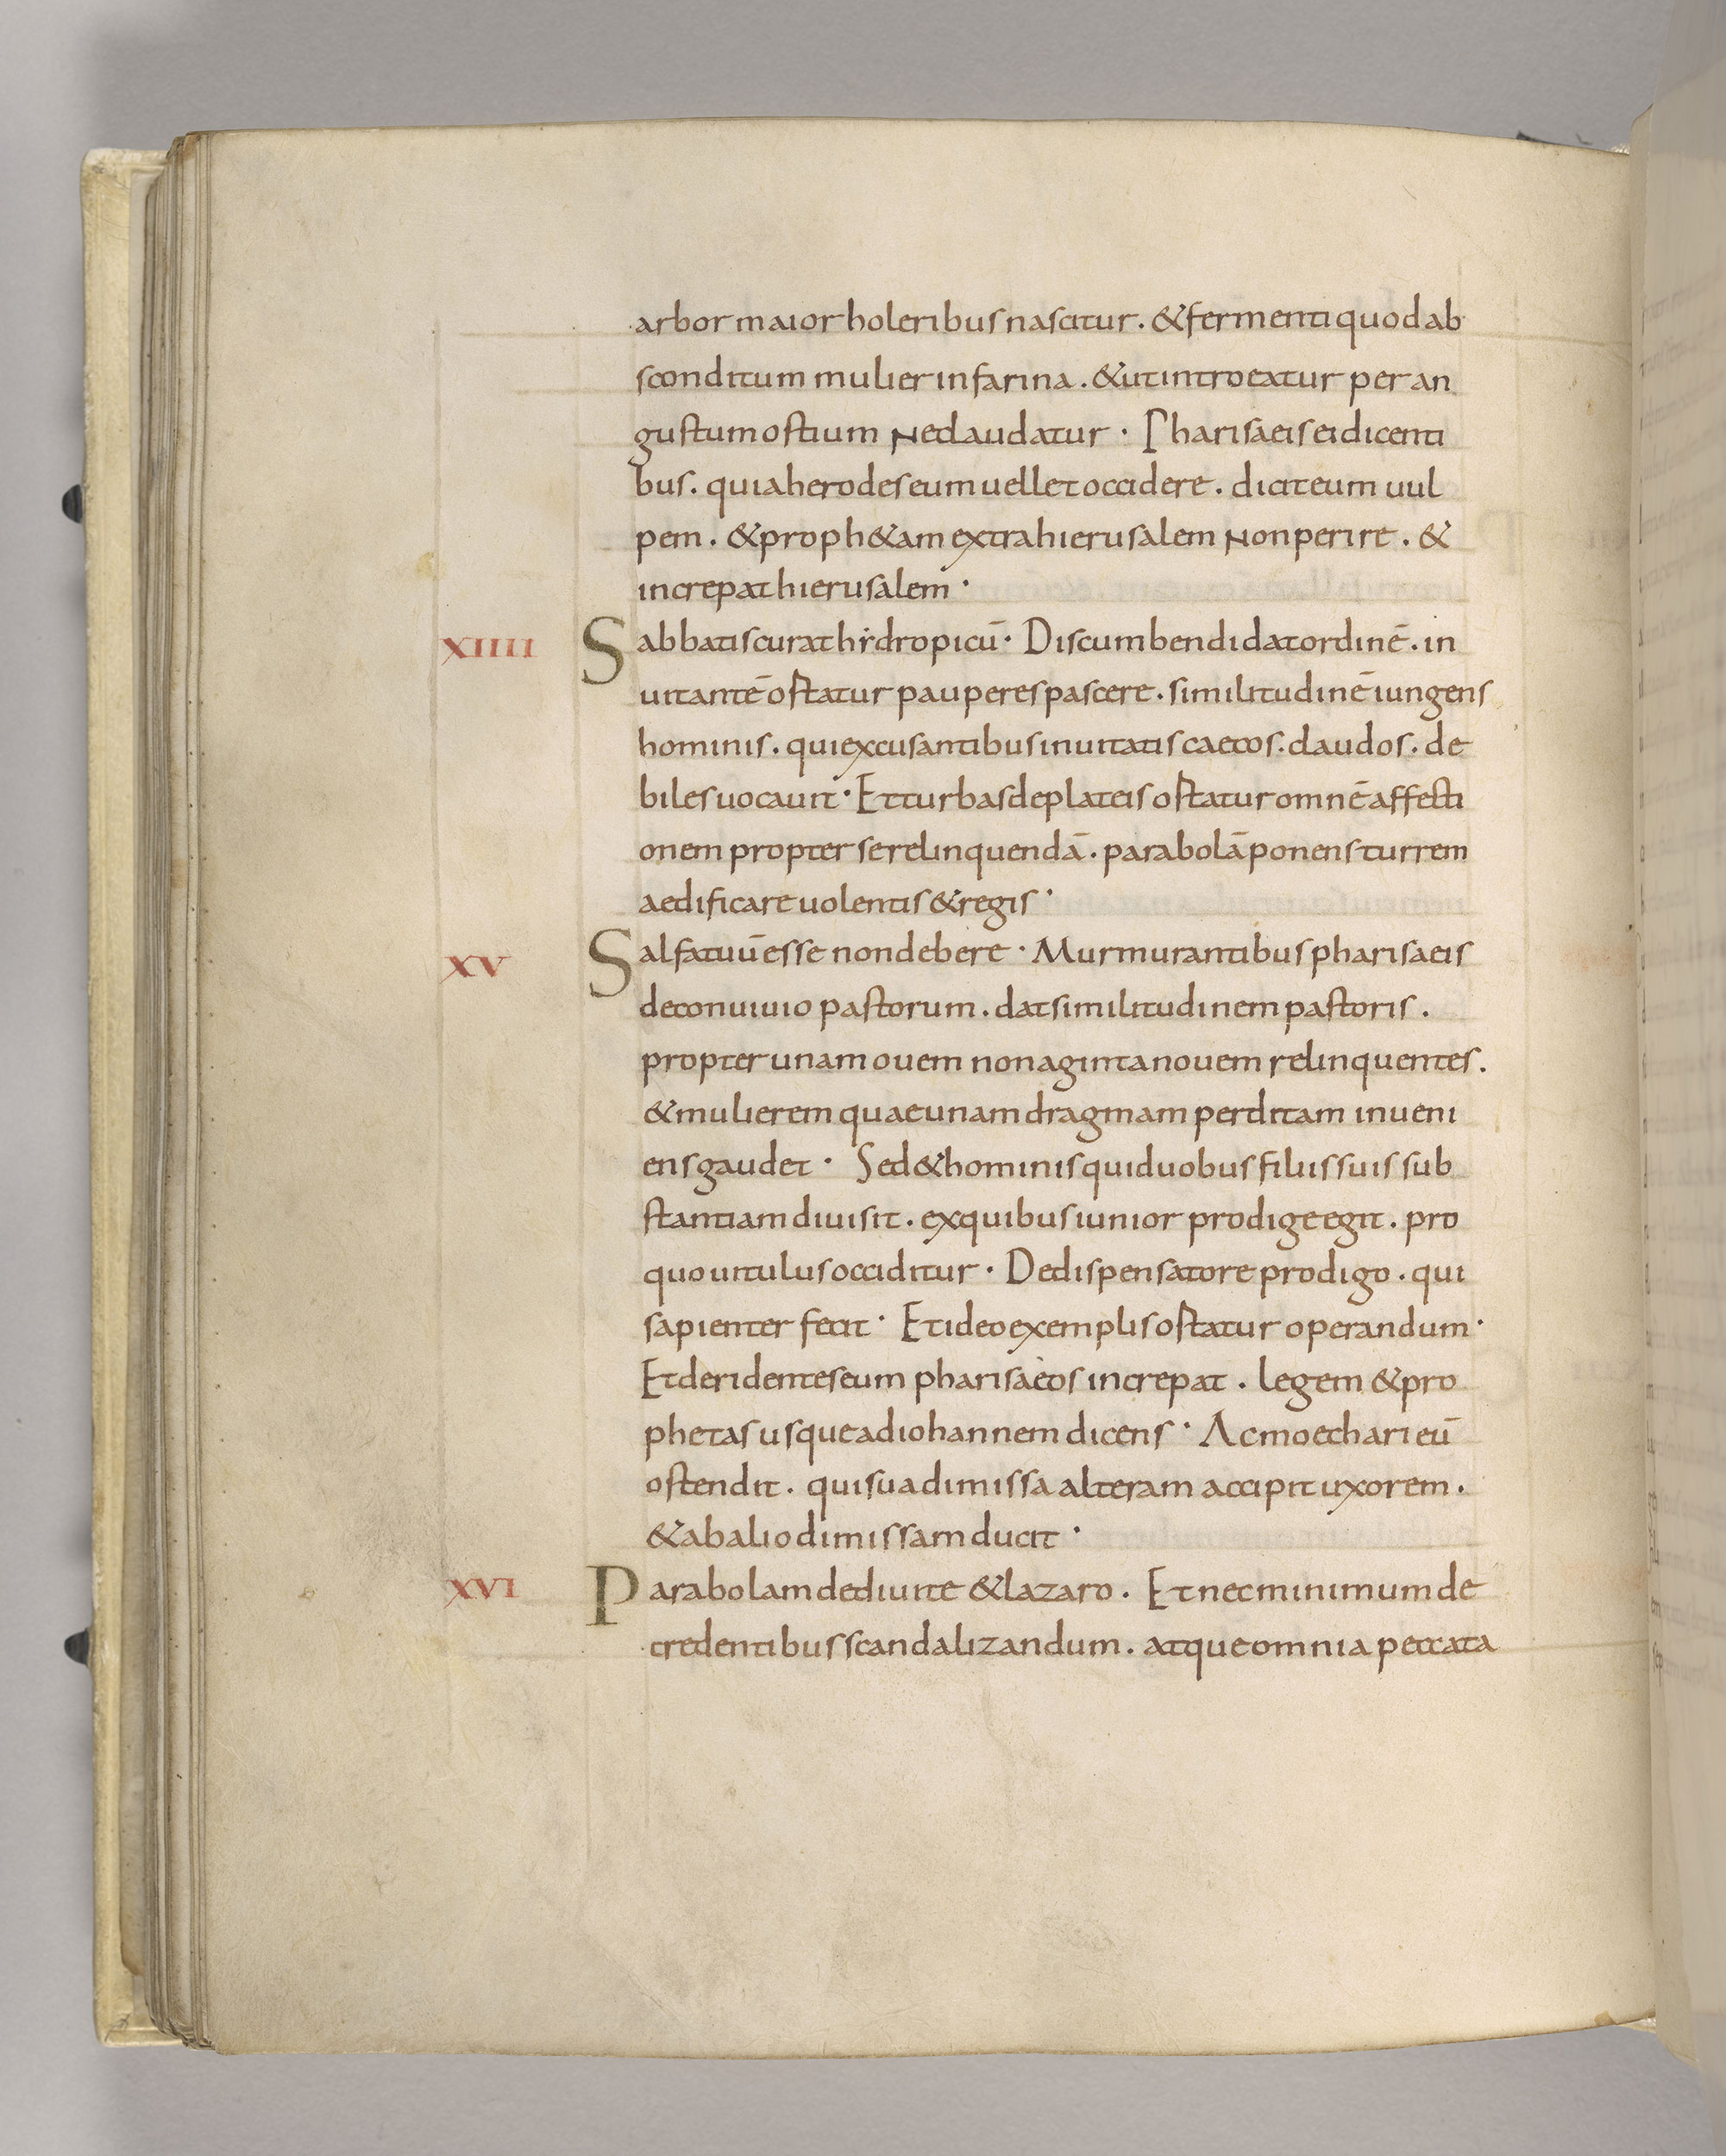 arbor maior holeribus nascitur. & fermenti quod ab
sconditum mulier in farina. & ut introeatur per an
gustum ostium Ne claudatur · Pharisaeis ei dicenti
bus. quia herodes eum uellet occidere. dicit eum uul
pem. & proph&am extra hierusalem Non perire. &
increpat hierusalem ·
XIIII Sabbatis curat hẏdropicū · Discumbendi dat ordinē. in
uitantē ostatur pauperes pascere. similitudinē iungens
hominis. qui excusantibus inuitatis caecos. claudos. de
biles uocauit · Et turbas de plateis ostatur omnē affecti
onem propter se relinquendā. parabolā ponens turrem
aedificare uolentis & regis ·
XV Sal fatuū esse non debere · Murmurantibus pharisaeis
de conuiuio pastorum. dat similitudinem pastoris.
propter unam ouem nonaginta nouem relinquentes.
& mulierem quae unam dragmam perditam inueni
ens gaudet · Sed & hominis qui duobus filiis suis sub
stantiam diuisit. ex quibus iunior prodige egit. pro
quo uitulus occiditur · De dispensatore prodigo. qui
sapienter fecit · Et ideo exemplis ostatur operandum ·
Et deridentes eum pharisaeos increpat. legem & pro
phetas usque ad iohannem dicens · Ac moechari eū
ostendit. qui sua dimissa alteram accipit uxorem.
& ab alio dimissam ducit ·
XVI Parabolam de diuite & lazaro. Et nec minimum de
credentibus scandalizandum. atque omnia peccata